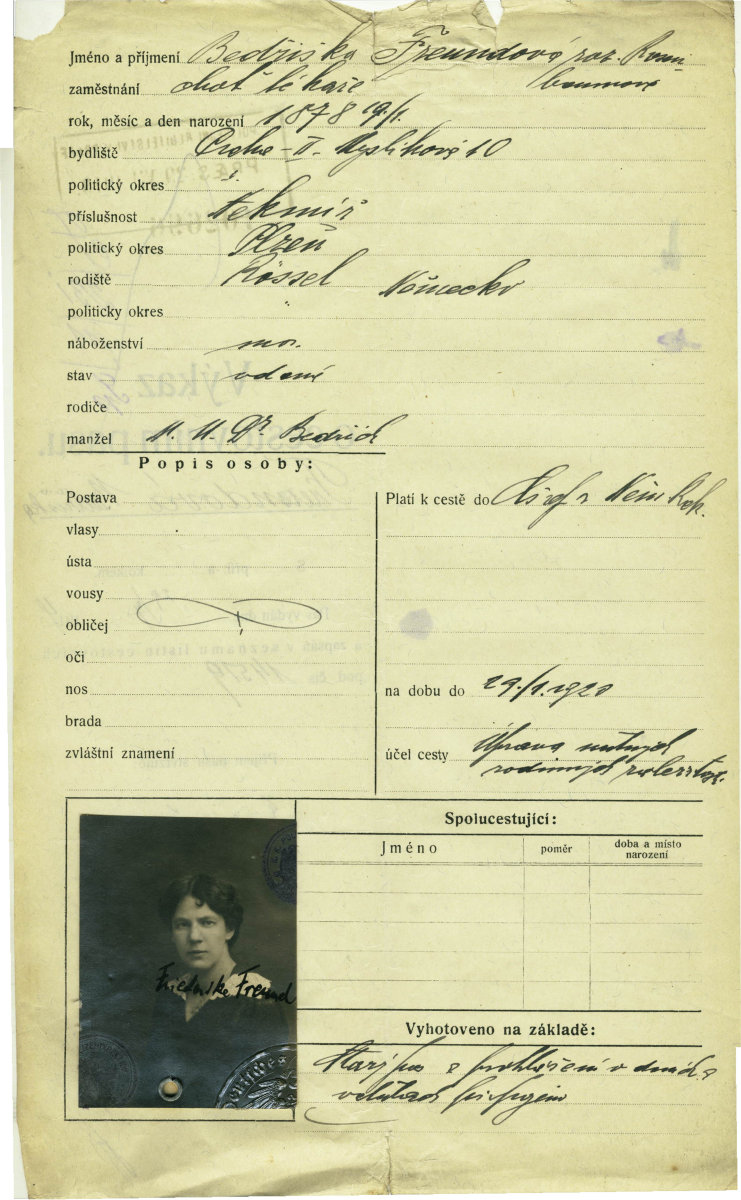 Jméno a příjmení Bedřiška Freundová roz.
zaměstnání choť lékaře
rok, měsíc a den narození 1878 19/1.
bydliště Praha – II. Myslíkova 10
politický okres
příslušnost Nekmíř
politický okres Plzeň
rodiště Rössel Německo
politicky okres "
náboženství mos.
stav vdaná
rodiče
manžel M. U. Dr Bedřich
Popis osoby:
Postava
vlasy
ústa
vousy
obličej
oči
nos
brada
zvláštní znamení
Platí k cestě do Něm. Rak.
na dobu do 29./1. 1920
účel cesty Úprava nutných
rodinných záležitostí.
Friederike Freund
Spolucestující:
Jméno poměr doba a místo
narození
Vyhotoveno na základě: